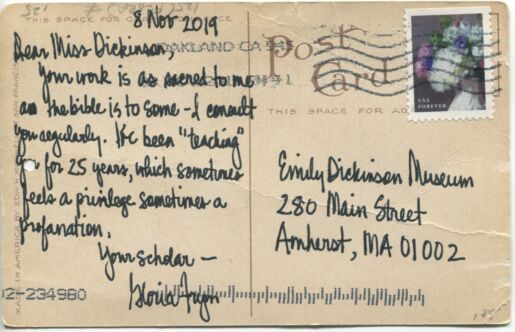 8 Nov 2019
THIS SPACE FOR
Dear Miss Dickinson,
OAKLAND CA 945
Your work is as sacred to me
as the bible is to some - I consult
you regularly. I've been "teaching"
you for 25 years, which sometimes
feels a privilege sometimes a
profanation.
Your scholar -
Post
Card
THIS SPACE FOR AD
USA
FOREVER
Emily Dickinson Museum
280 Main Street
Amherst, MA 01002
MADE IN AMERICA BY EDW. H. MITCHELL, SAN FRANCISCO
02-234980